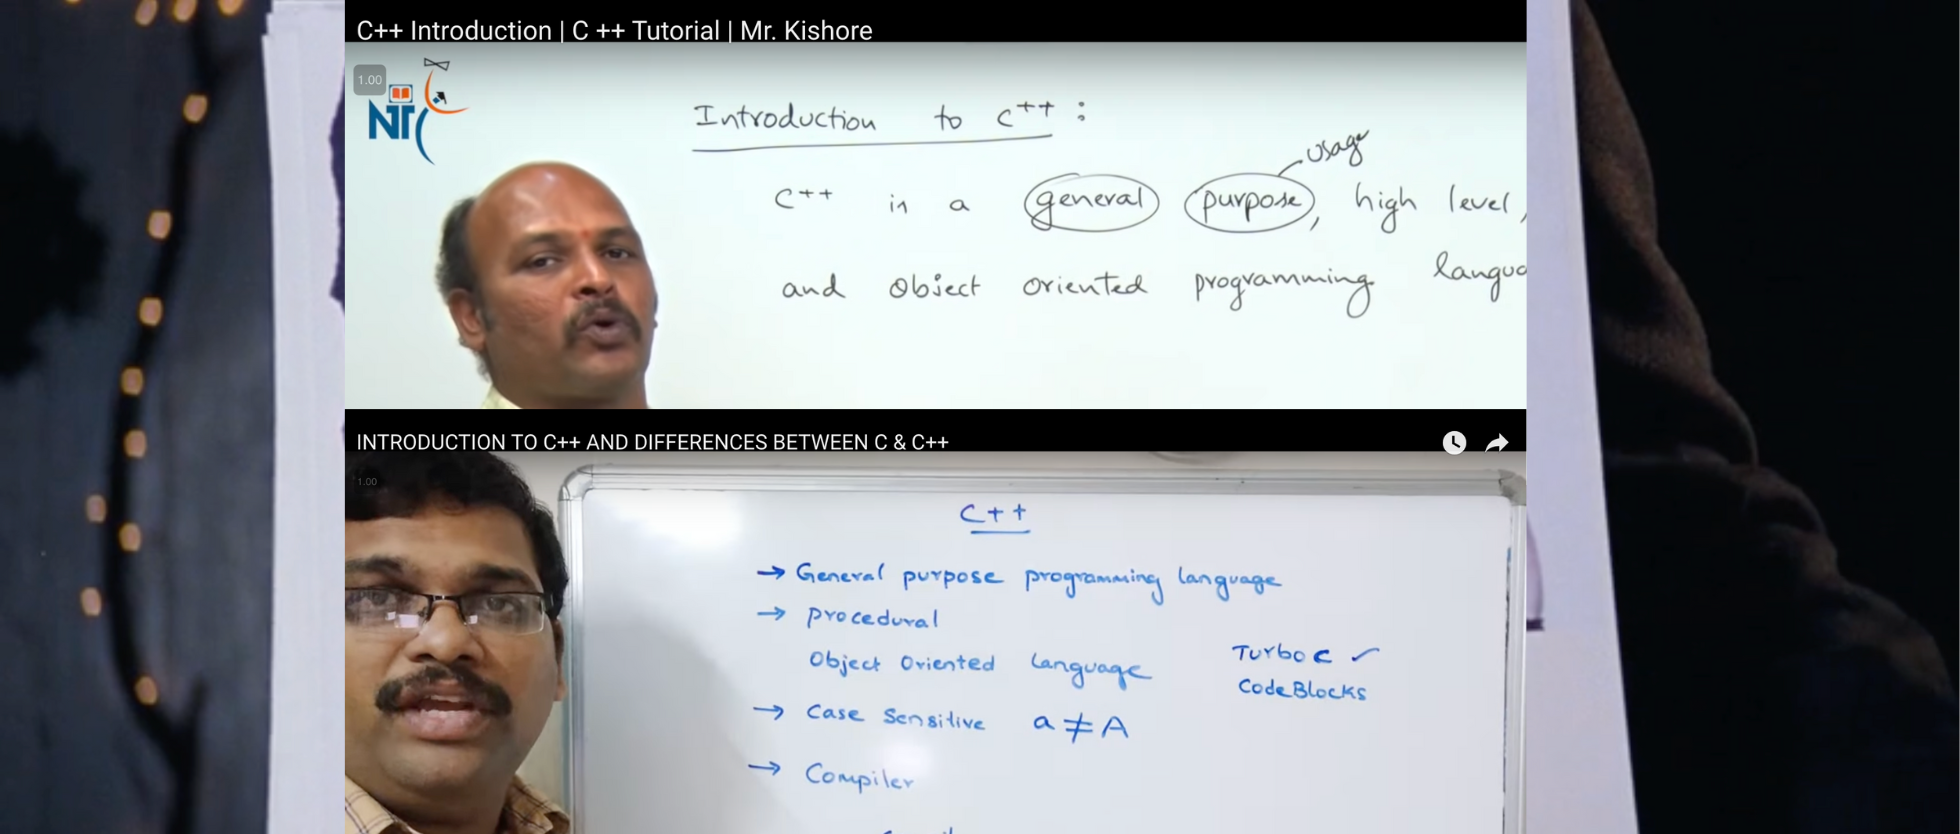 C++ Introduction | C ++ Tutorial | Mr. Kishore
1.00
NT
Introduction to C++ :
usage
C++ is a general purpose, high level,
and object oriented programming
INTRODUCTION TO C++ AND DIFFERENCES BETWEEN C & C++
1.00
C++
→ General purpose programming language
→ procedural
Object Oriented Language
Turbo C ✓
CodeBlocks
→ Case Sensitive a ≠ A
→ Compiler